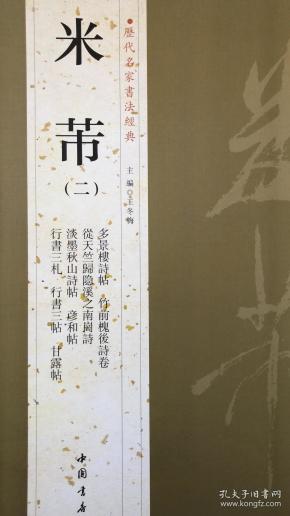 歷代名家書法經典
米芾
(二)
主編◎王冬梅
多景樓詩帖 竹前槐後詩卷
從天竺歸隐溪之南崗詩
淡墨秋山詩帖 彦和帖
行書三札 行書三帖 甘露帖
中國書店
孔夫子旧书网